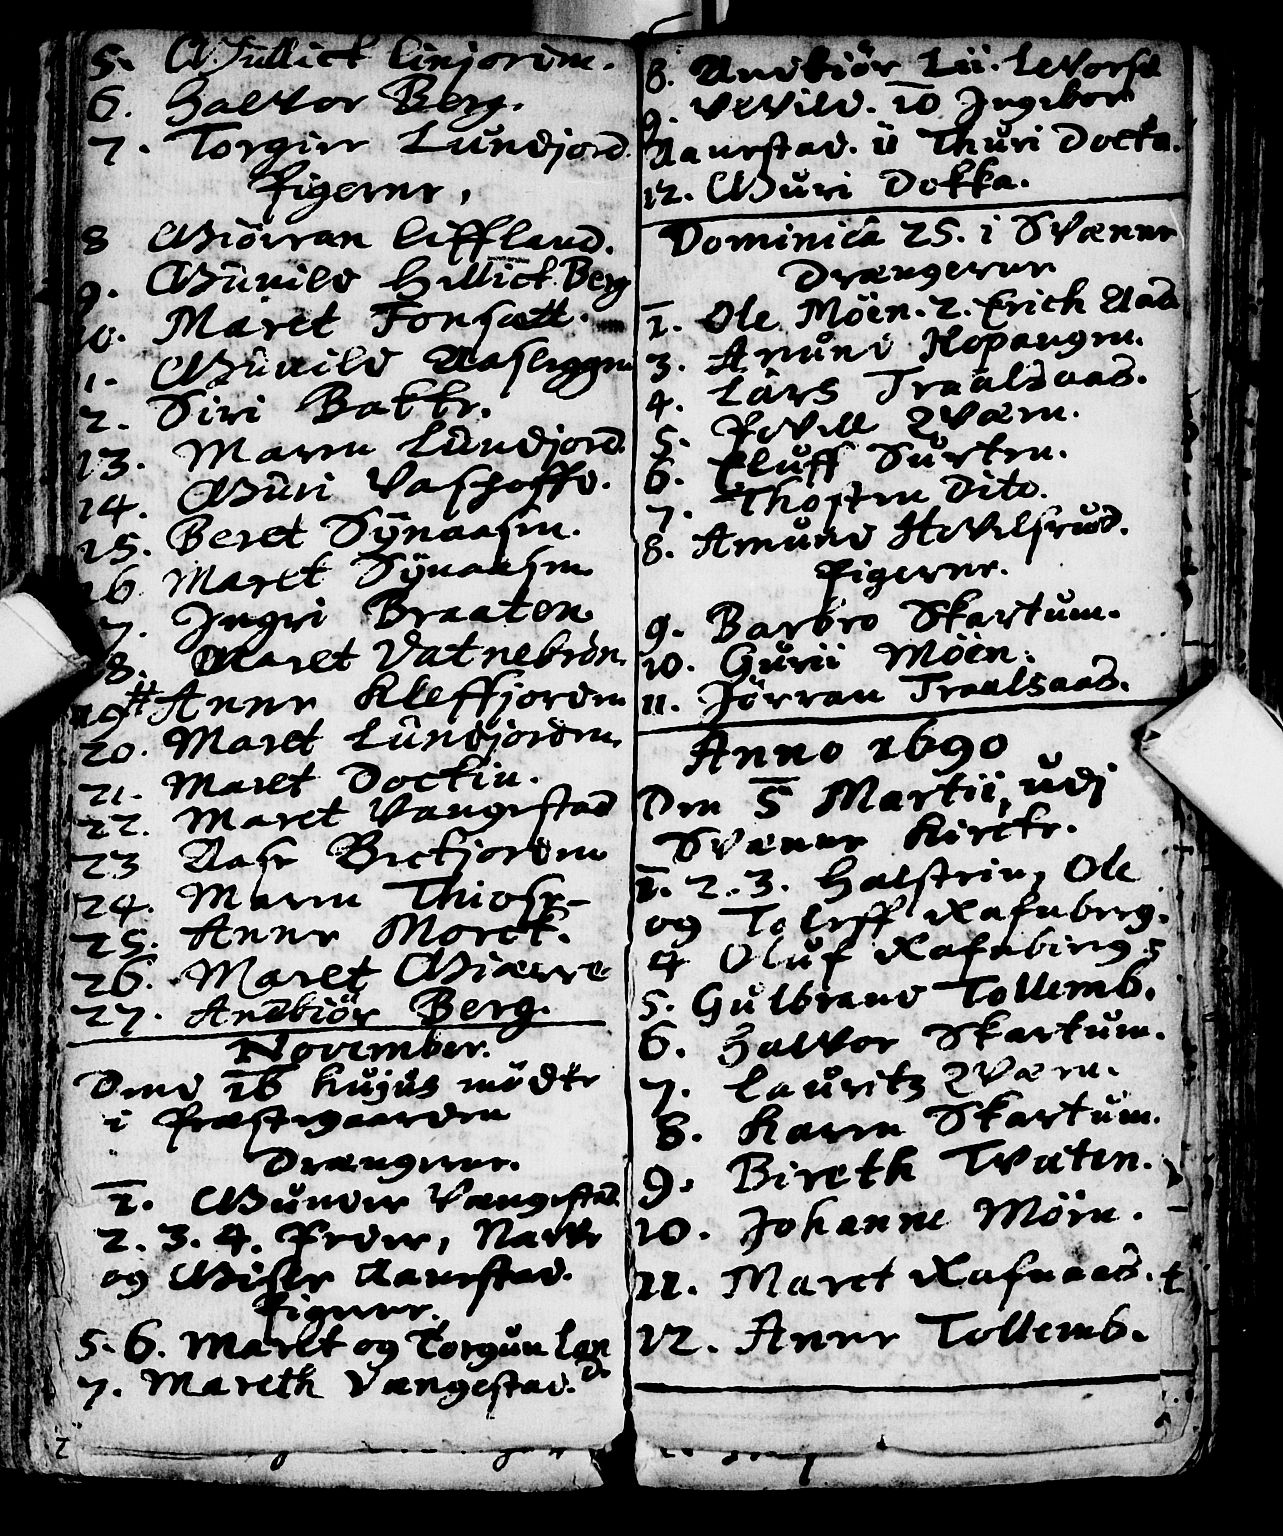 5. Gullick Linjorden.
6. Halvor Berg.
7. Torgier Lundjord.
Pigerne,
8 Giörran Liffland.
9. Gunild Hellick Berg
10. Maret Fonsatt.
1. Gunild Aasleggen
2. Siri Bakke.
13. Maren Lundjord.
14. Guri
15. Beret Synaasen.
16 Maret Synaasen
7. Ingri Braaten.
8. Maret Vatnebrön.
19 # Anne Kleffjorden
20. Maret Lundjorden.
21. Maret Dockin.
22. Maret Vangestad
23 Aase Beckjorden
24. Maren Thiose-
25. Anne Morck.
26. Maret Giærre
27. Andbiör Berg.
November.
Dend 16 hujus mödte
i Præstegaarden
Drængerne.
1. Gunder Vangestad
2. 3. 4. Peder, Narve
og Giser Aavestad.
Pigerne.
5. 6. Maret og Torgun Lan
de
7. Mareth Vangestad.
8. Andbiör Lii. Levorsd
9. Vevild. 10 Ingebor
Aavestad. 11 Thuri Docka.
12. Guri Dokka.
Dominica 25. i Svænne
Drængerne
1. Ole Möen. 2. Erich Aas
3. Amund Nopangen.
4. Lars Traalsaas.
5. Povell Qværn.
6. Eluff Surten.
7. Thosten Dito.
8. Amund Hovelsrud.
Pigerne.
9. Barbro Skartum.
10. Gurii Möen.
11. Jörran Traalsaas.
Anno 1690
Den 5 Martii, udj
Svænne Kircke.
1. 2. 3. Halstein, Ole
og Toleff Rafnberg.
4 Oluf Rafnberg s
5. Gulbrand Tollemb.
6. Halvor Skartum.
7. Lauritz Qværn.
8. Karen Skartum.
9. Bireth Tvæten.
10. Johanne Möen.
11. Maret Rafnaas. t
12. Anne Tollemb.